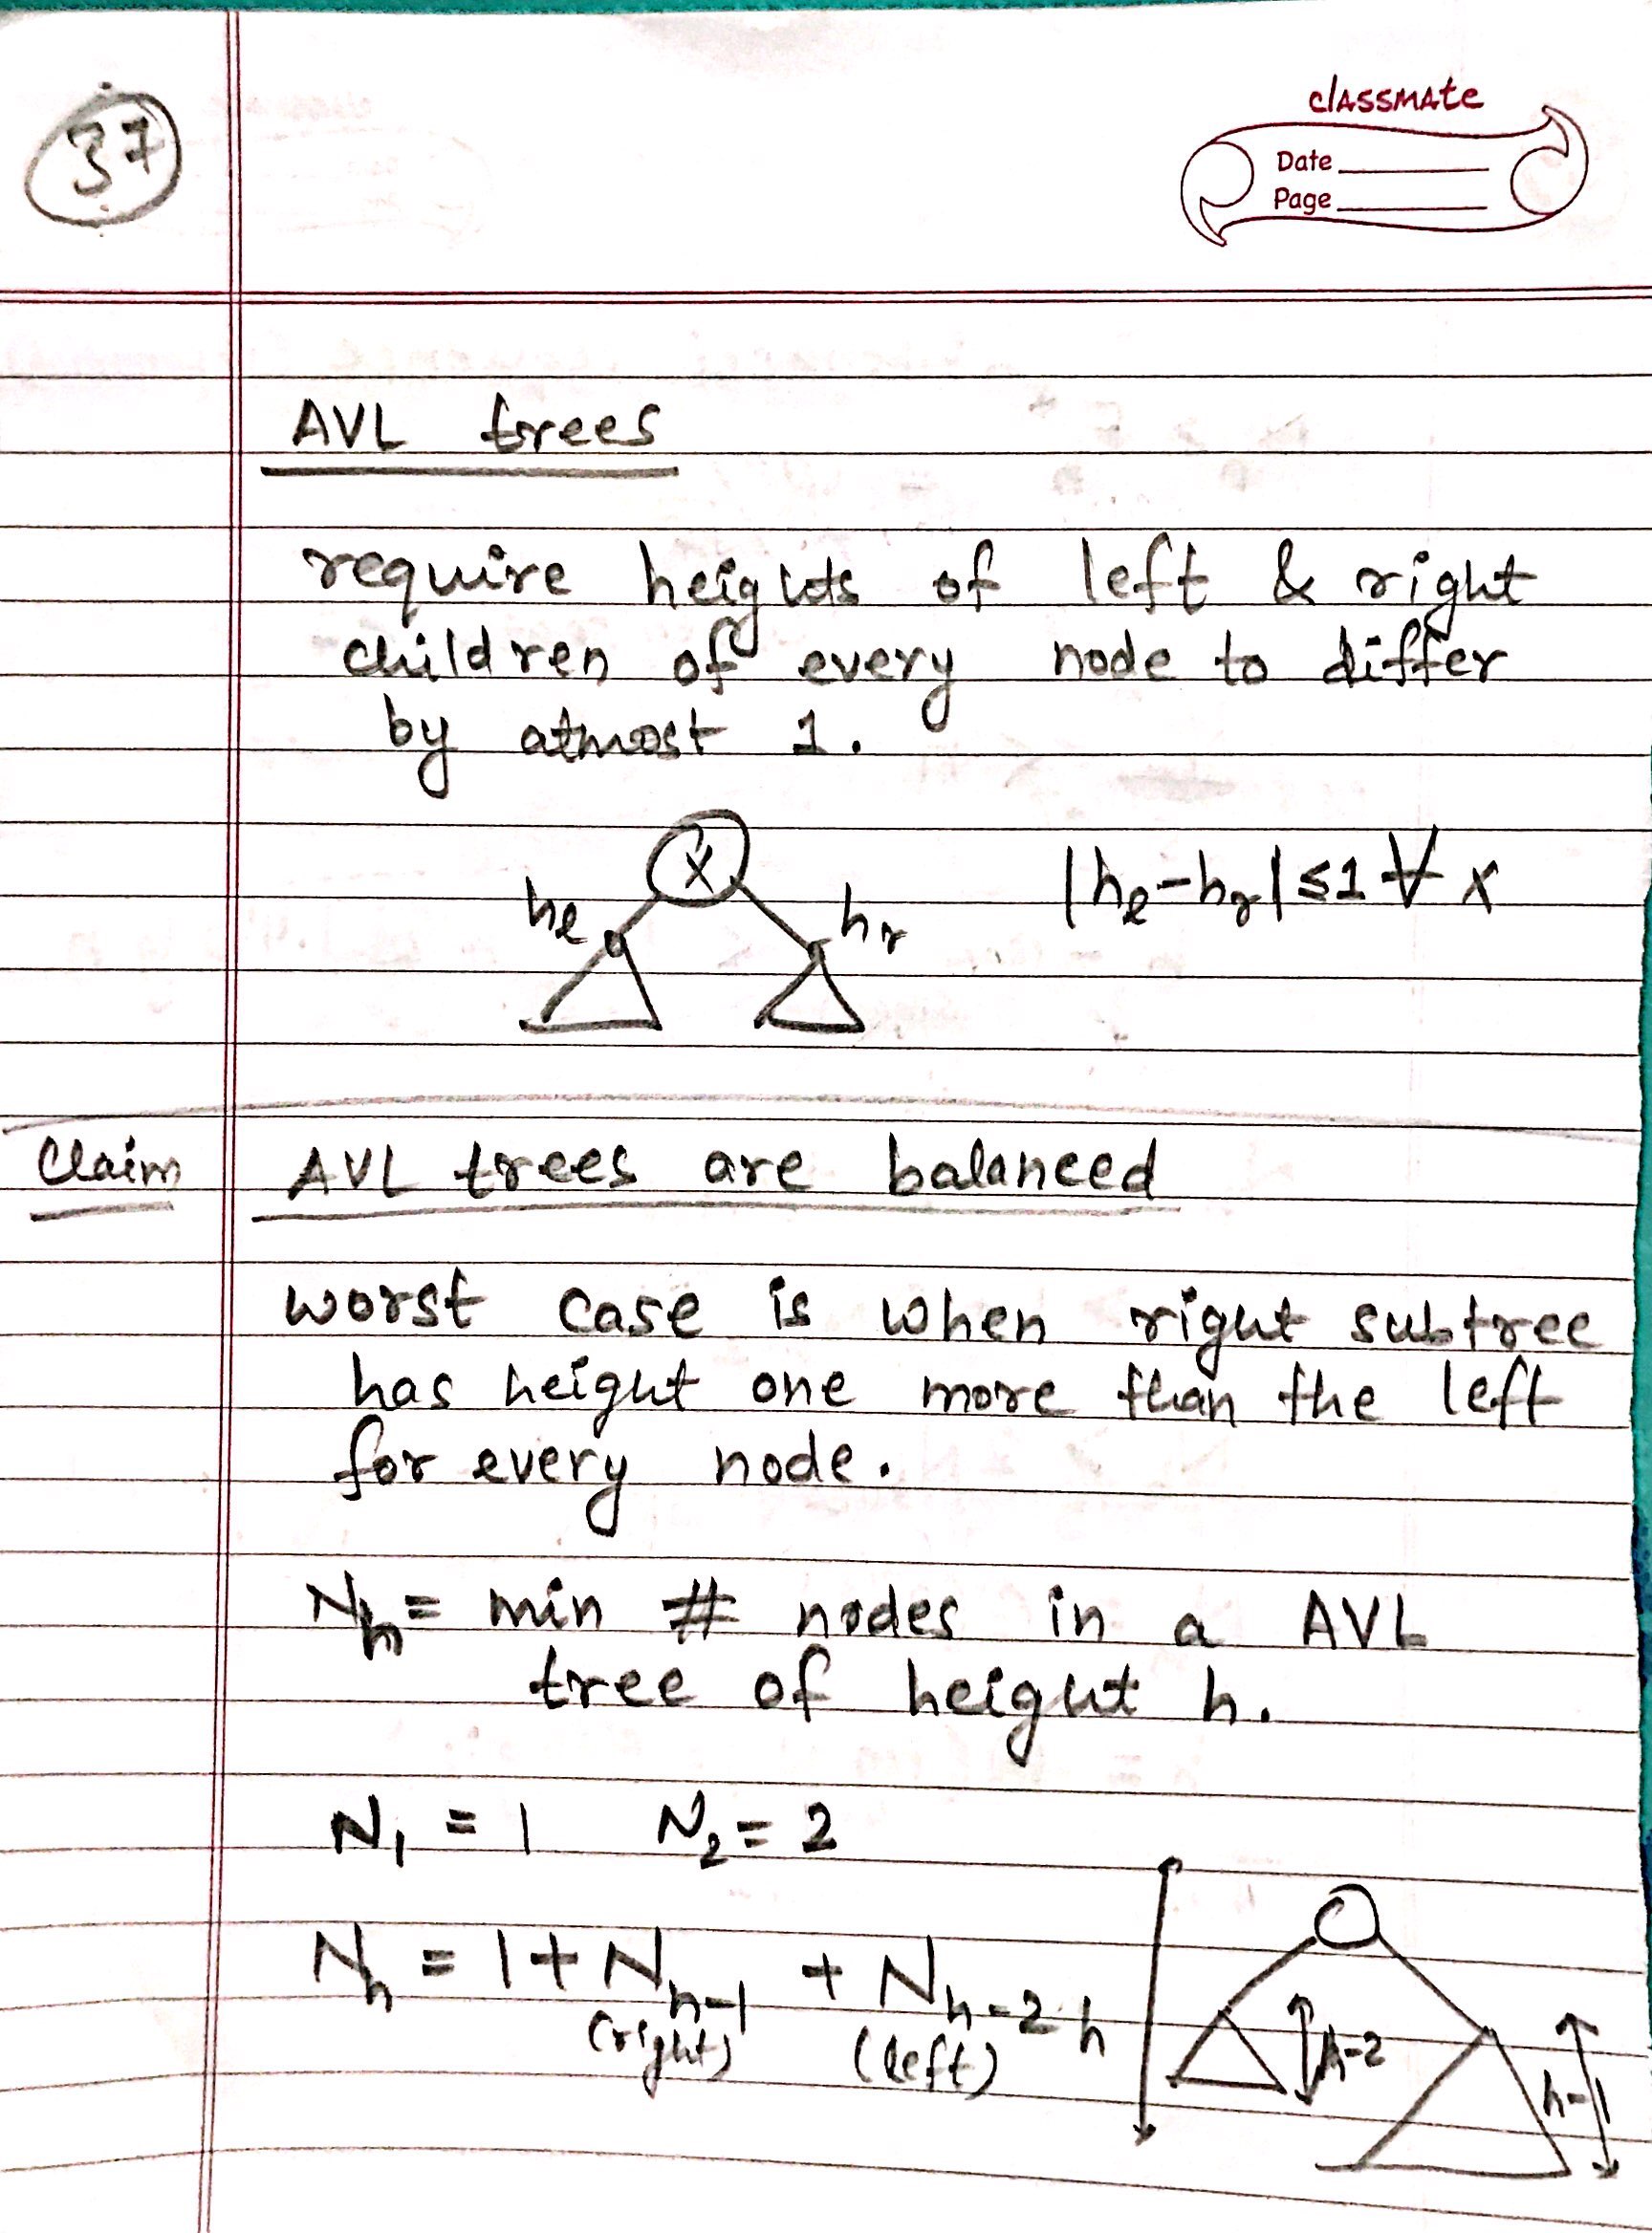 37
classmate
Date
Page
AVL trees
require heights of left & right
children of every node to differ
by atmost 1.
x
hₗ
hᵣ
|hₗ-hᵣ|≤1 ∀ x
Claim
AVL trees are balanced
worst case is when right subtree
has height one more than the left
for every node.
Nₕ = min # nodes in a AVL
tree of height h.
N₁ = 1 N₂ = 2
Nₕ = 1 + Nₕ₋₁ + Nₕ₋₂
(right) (left)
h
h-2
h-1